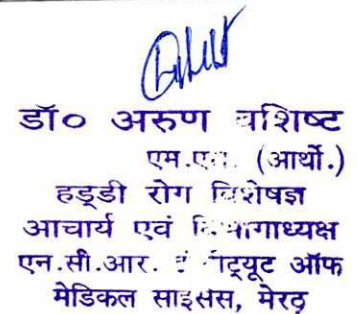 डॉ० अरुण वशिष्ट
एम.एस. (आर्थो.)
हड्डी रोग विशेषज्ञ
आचार्य एवं विभागाध्यक्ष
एन.सी.आर. इंस्टिट्यूट ऑफ
मेडिकल साइसंस, मेरठ